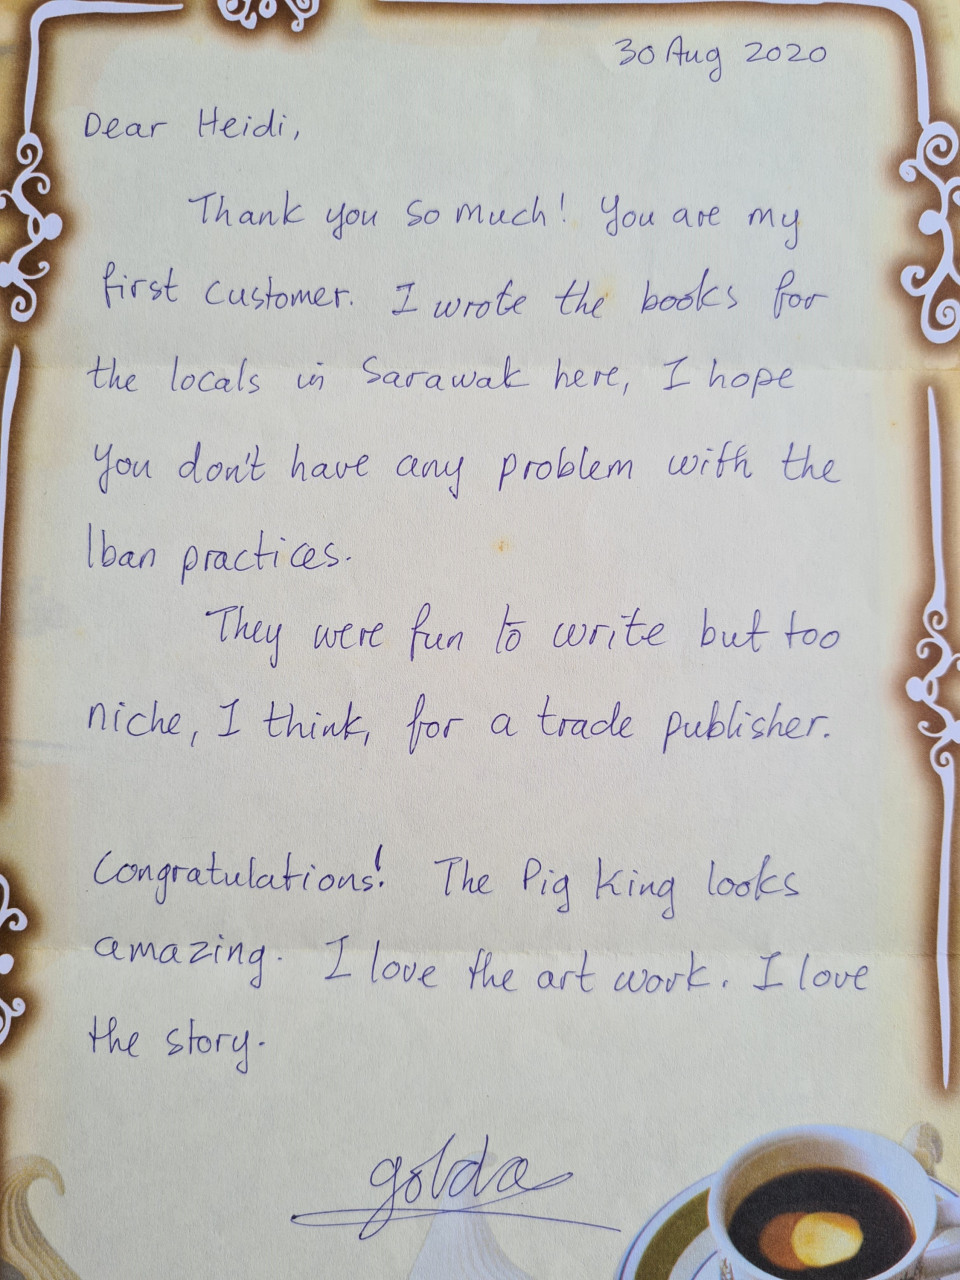 30 Aug 2020
Dear Heidi,
Thank you so much! You are my
first customer. I wrote the books for
the locals in Sarawak here, I hope
you don't have any problem with the
Iban practices.
They were fun to write but too
niche, I think, for a trade publisher.
Congratulations! The Pig King looks
amazing. I love the art work. I love
the story.
golda